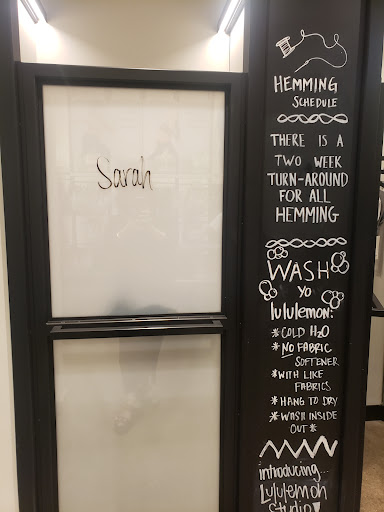 Sarah
HEMMING
SCHEDULE
THERE IS A
TWO WEEK
TURN-AROUND
FOR ALL
HEMMING
WASH
YO
lululemon:
*COLD H₂O
*NO FABRIC
SOFTENER
*WITH LIKE
FABRICS
*HANG TO DRY
*WASH INSIDE
OUT*
introducing...
Lululemon
Studio!